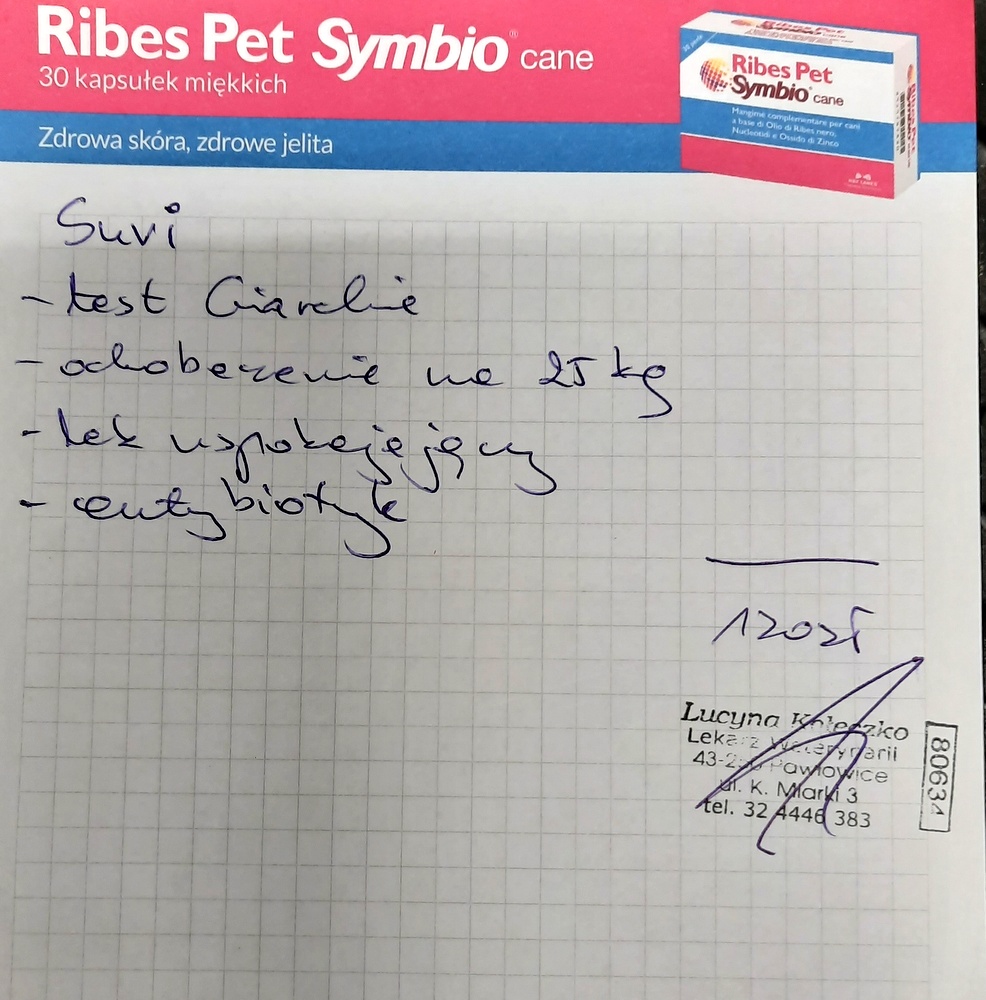 Ribes Pet Symbio® cane
30 kapsułek miękkich
Zdrowa skóra, zdrowe jelita
Ribes Pet
Symbio® cane
Mangime complementare per cani
a base di Olio di Ribes nero,
Nucleotidi e Ossido di Zinco
Suvi
- test Giardie
- odrobaczenie na 25 kg
- lek uspokajający
- antybiotyk
120zł
Lucyna Kołeczko
Lekarz Weterynarii
Pawłowice
ul. K. Miarki 3
tel. 32 4446 383
80634